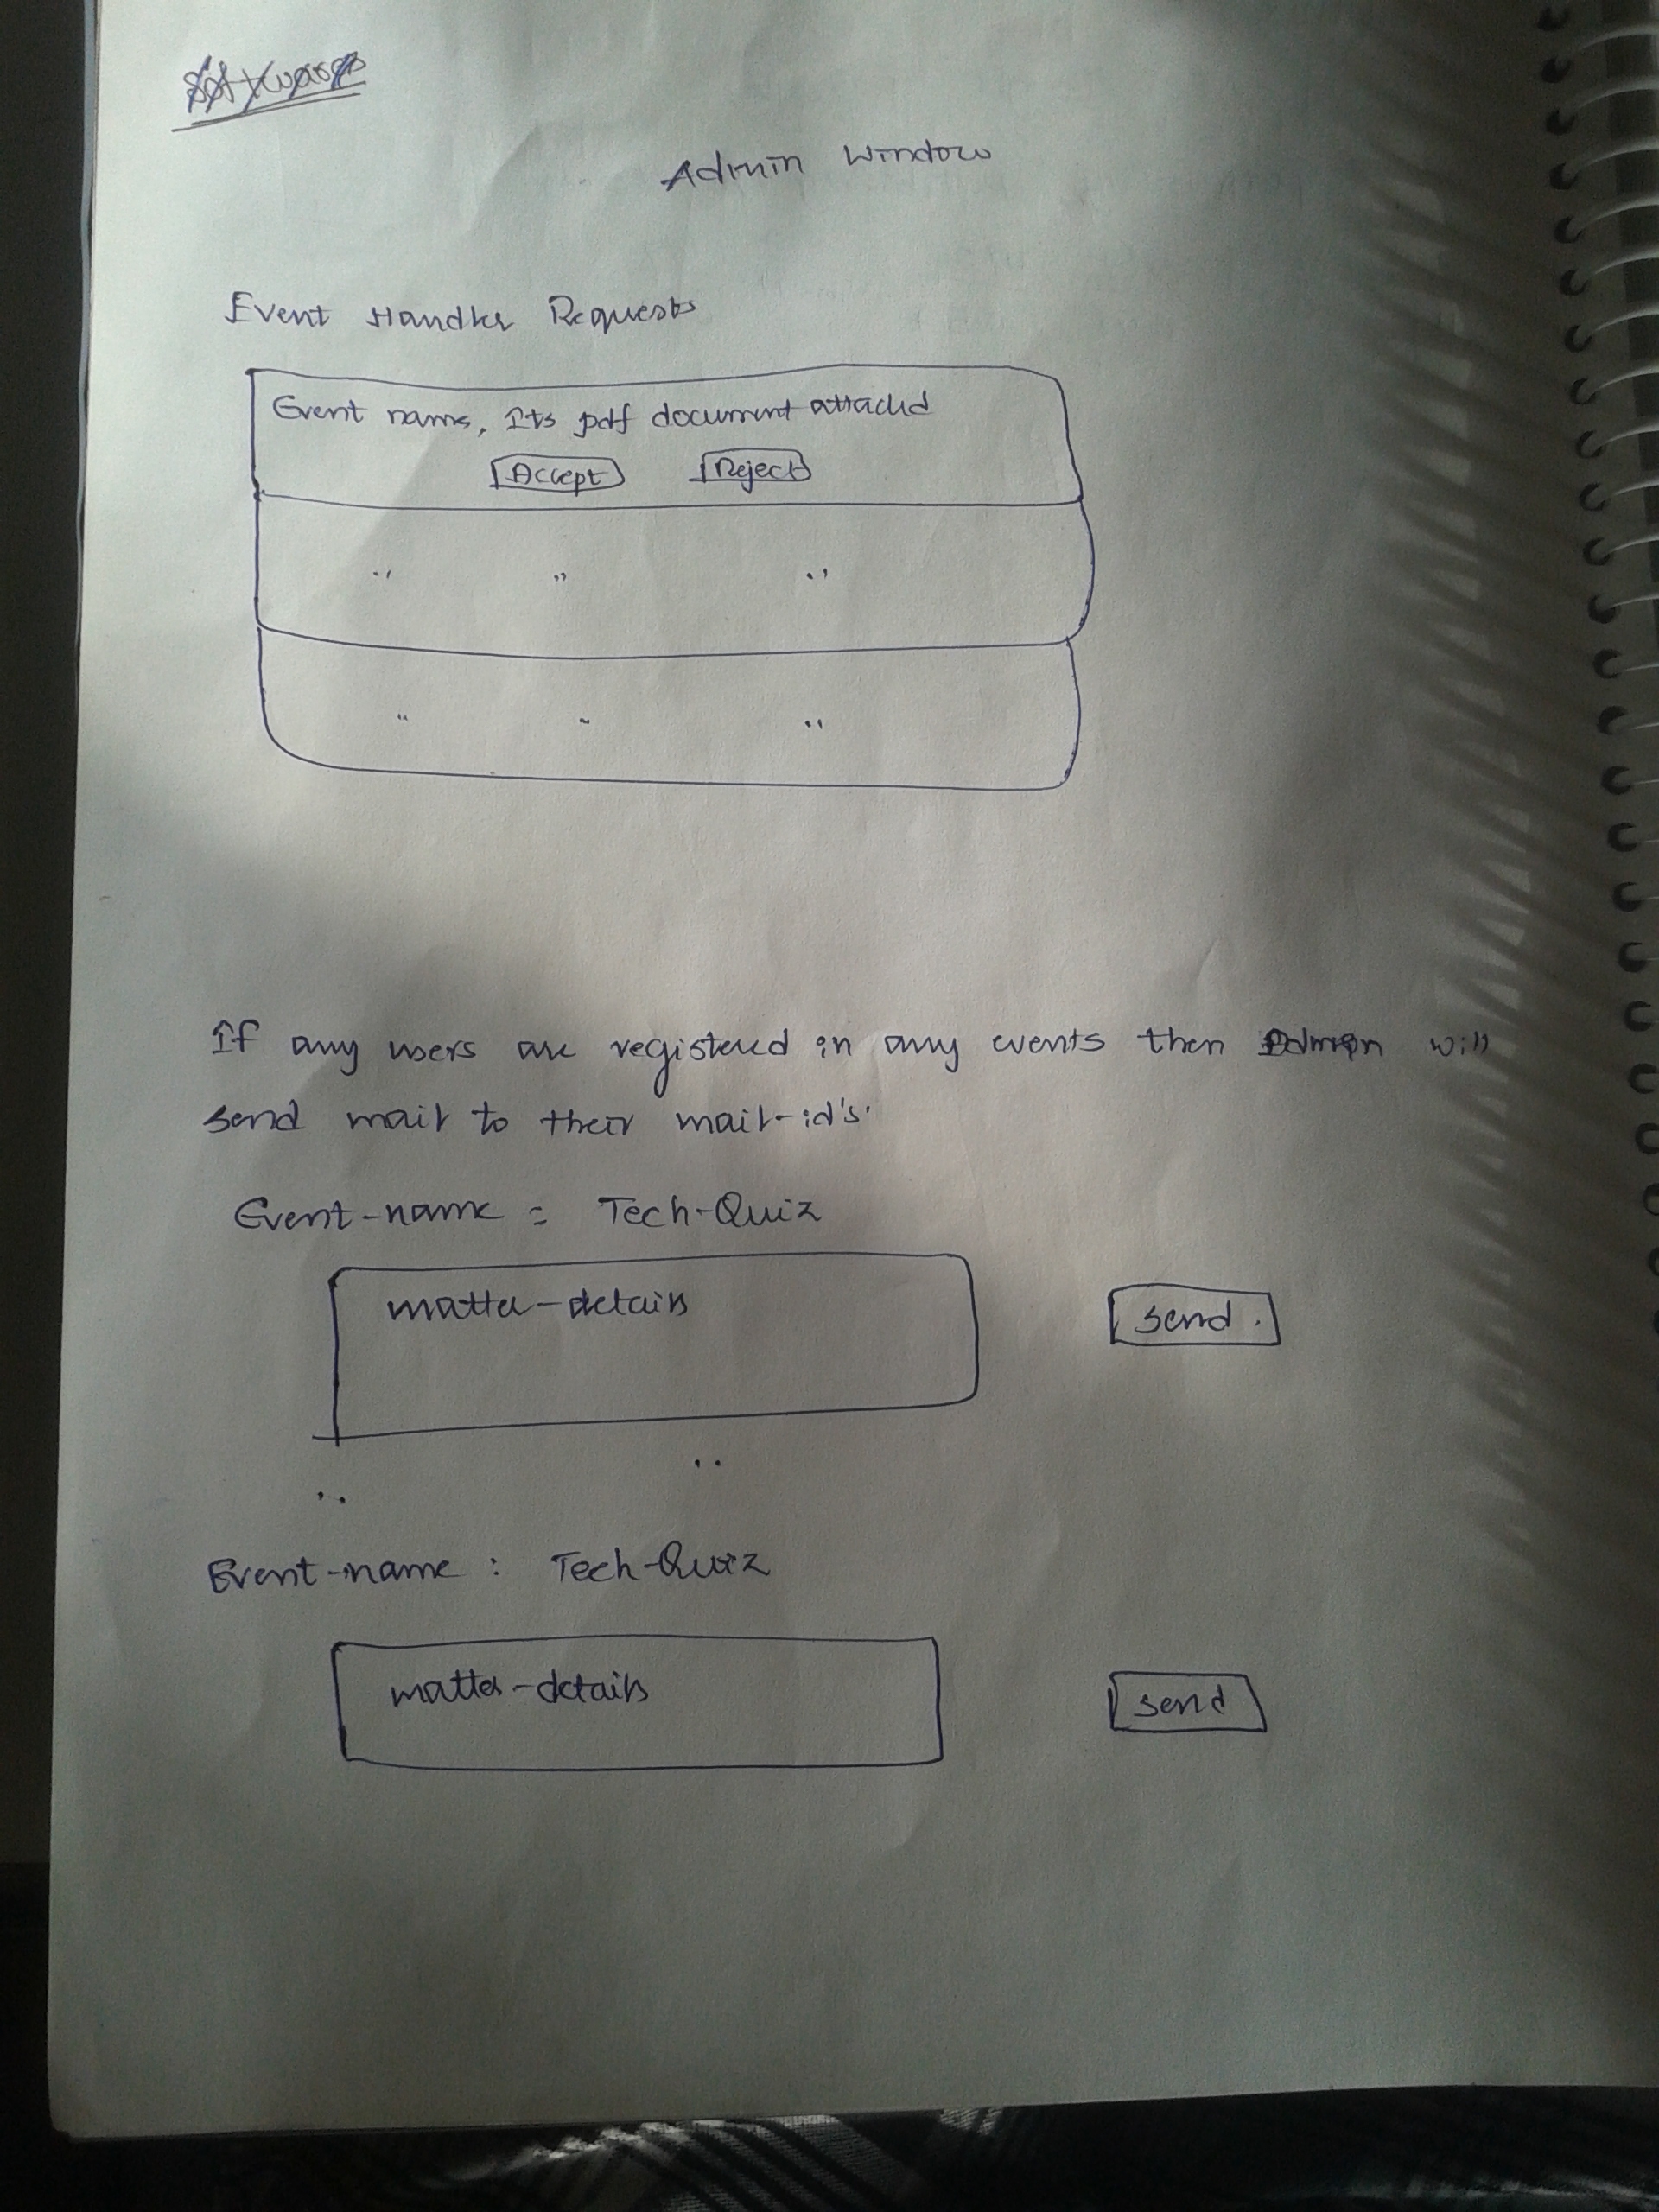 Admin Window
Event Handler Requests
Event name, Its pdf document attached
Accept Reject
" " "
" " "
If any users are registered in any events then Admin will
send mail to their mail-id's.
Event-name = Tech-Quiz
matter-details
send.
.. ..
Event-name : Tech-Quiz
matter-details
send